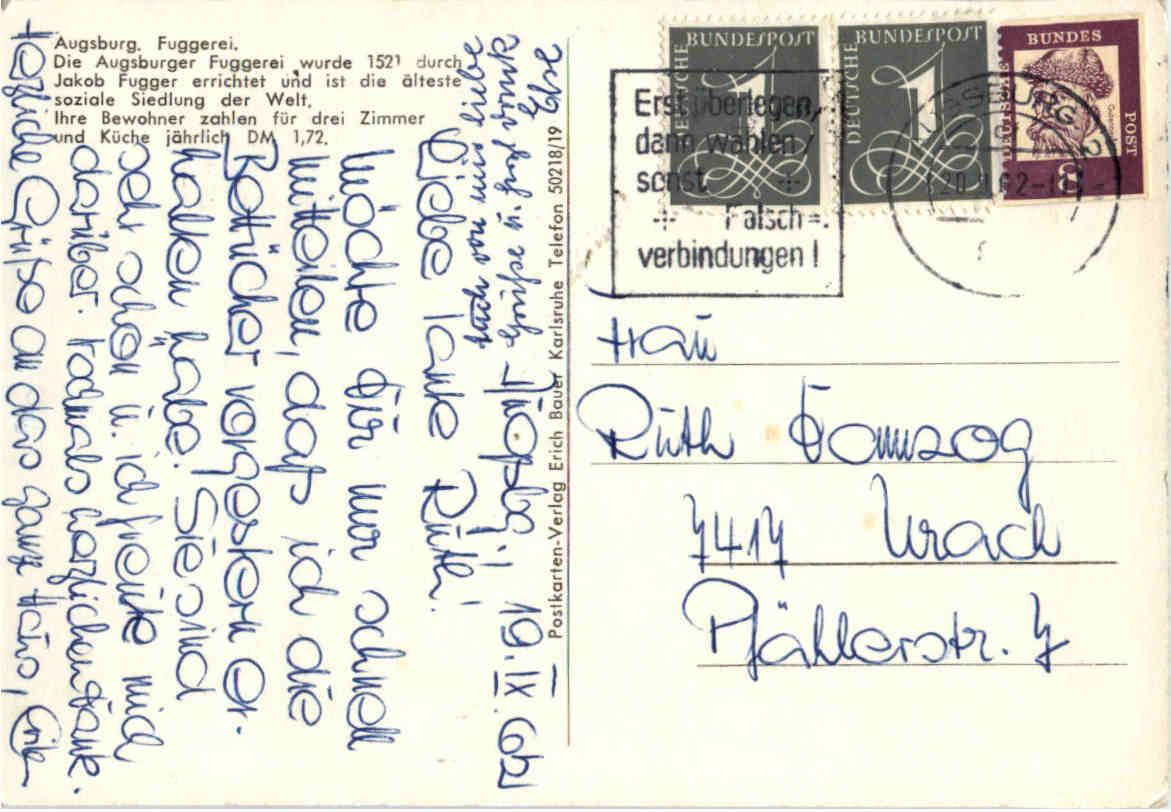 Augsburg. Fuggerei.
Die Augsburger Fuggerei wurde 1521 durch
Jakob Fugger errichtet und ist die älteste
soziale Siedlung der Welt.
Ihre Bewohner zahlen für drei Zimmer
und Küche jährlich DM 1,72.
Augsbg., 19.IX.62
Liebe Tante Ruth!
Möchte Dir nur schnell
mitteilen, daß ich die
Bettücher vorgestern er-
halten habe. Sie sind
sehr schön u. ich freute mich
darüber. Nochmals herzlichen Dank.
Herzliche Grüße an das ganze Haus, Erika
Auch von mir liebe
Else
Postkarten-Verlag Erich Bauer Karlsruhe Telefon 50218/19
DEUTSCHE BUNDESPOST
1
DEUTSCHE BUNDESPOST
1
DEUTSCHE BUNDESPOST
Erst überlegen,
dann wählen
sonst
Falsch=
verbindungen!
AUGSBURG 2
Frau
Ruth
7417 Urach
Pfählerstr. 7